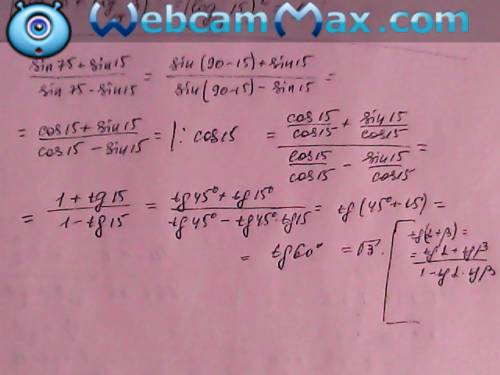 WebcamMax.com
(sin 75 + sin 15)/(sin 75 - sin 15) = (sin (90-15) + sin 15)/(sin (90-15) - sin 15) =
= (cos 15 + sin 15)/(cos 15 - sin 15) = |: cos 15 = (cos 15/cos 15 + sin 15/cos 15)/(cos 15/cos 15 - sin 15/cos 15) =
= (1 + tg 15)/(1 - tg 15) = (tg 45° + tg 15°)/(tg 45° - tg 45° · tg 15) = tg (45° + 15) =
= tg 60° = √3.
[tg(α+β) =
= (tg α + tg β)/(1 - tg α · tg β)